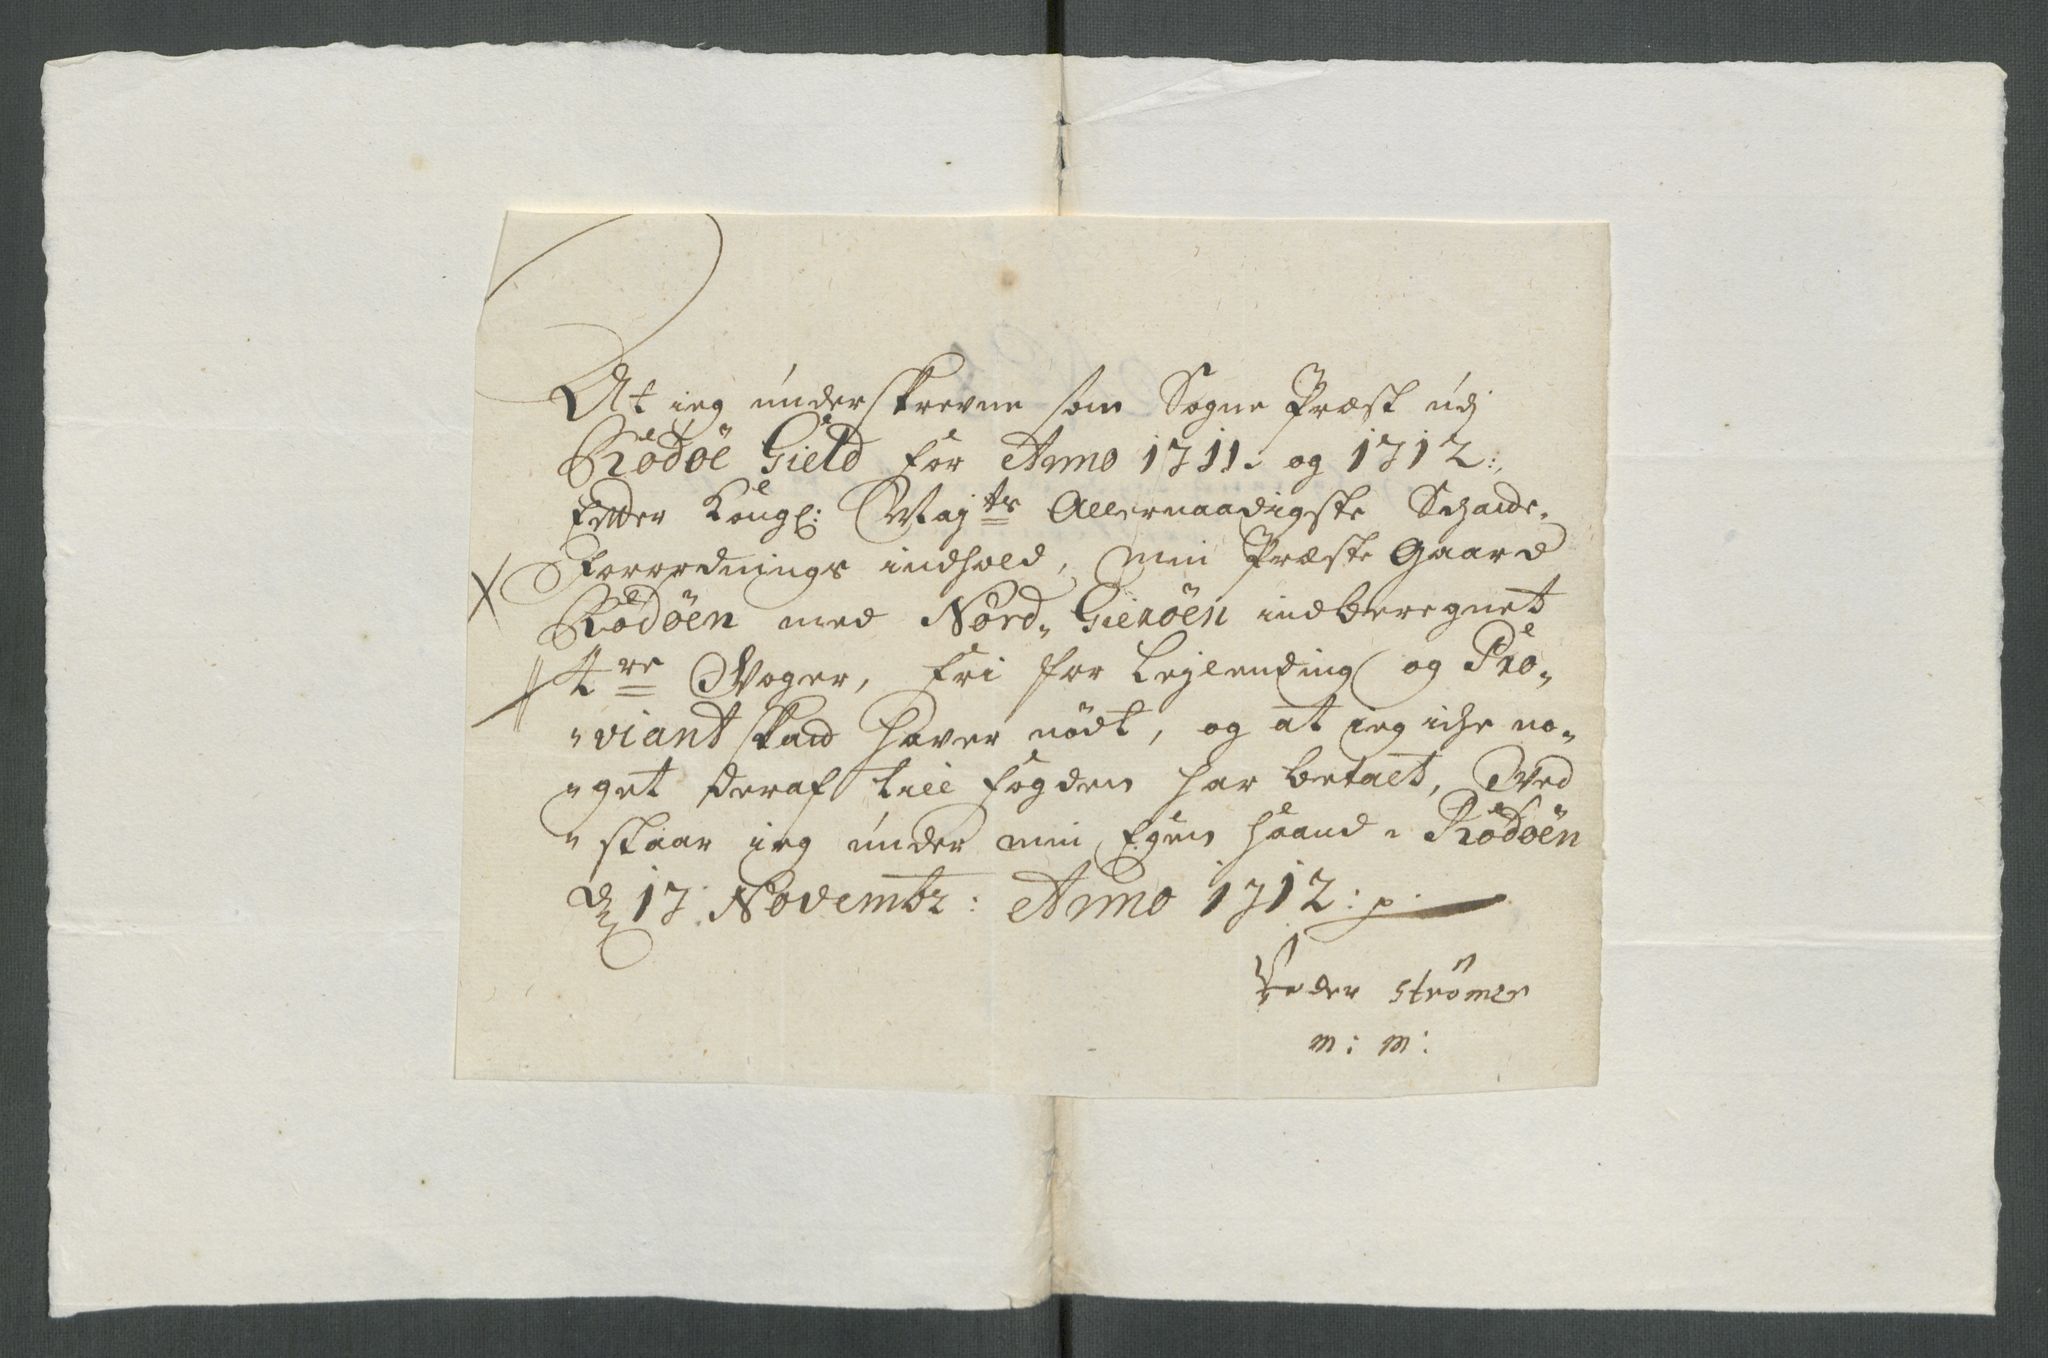 At ieg underskrevne som Sogne Præst udj
Rödöe Gield for Anno 1711. og 1712:,
Efter Kongl: Maj ts Allernaadigste Schatte„
Forordnings indhold, min Præste Gaard
Rödöen med Nord„ Gieröen indberegnet
4 re Woger, fri for Leylending og Pro„
„viant skatt haver nödt, og at ieg iche no„
„get deraf till fogden har betalt, Ved
„staar ieg under min Egen haand. Rödöen
d 17. Novembr: Anno 1712: p
Peder Strömer
m: m: